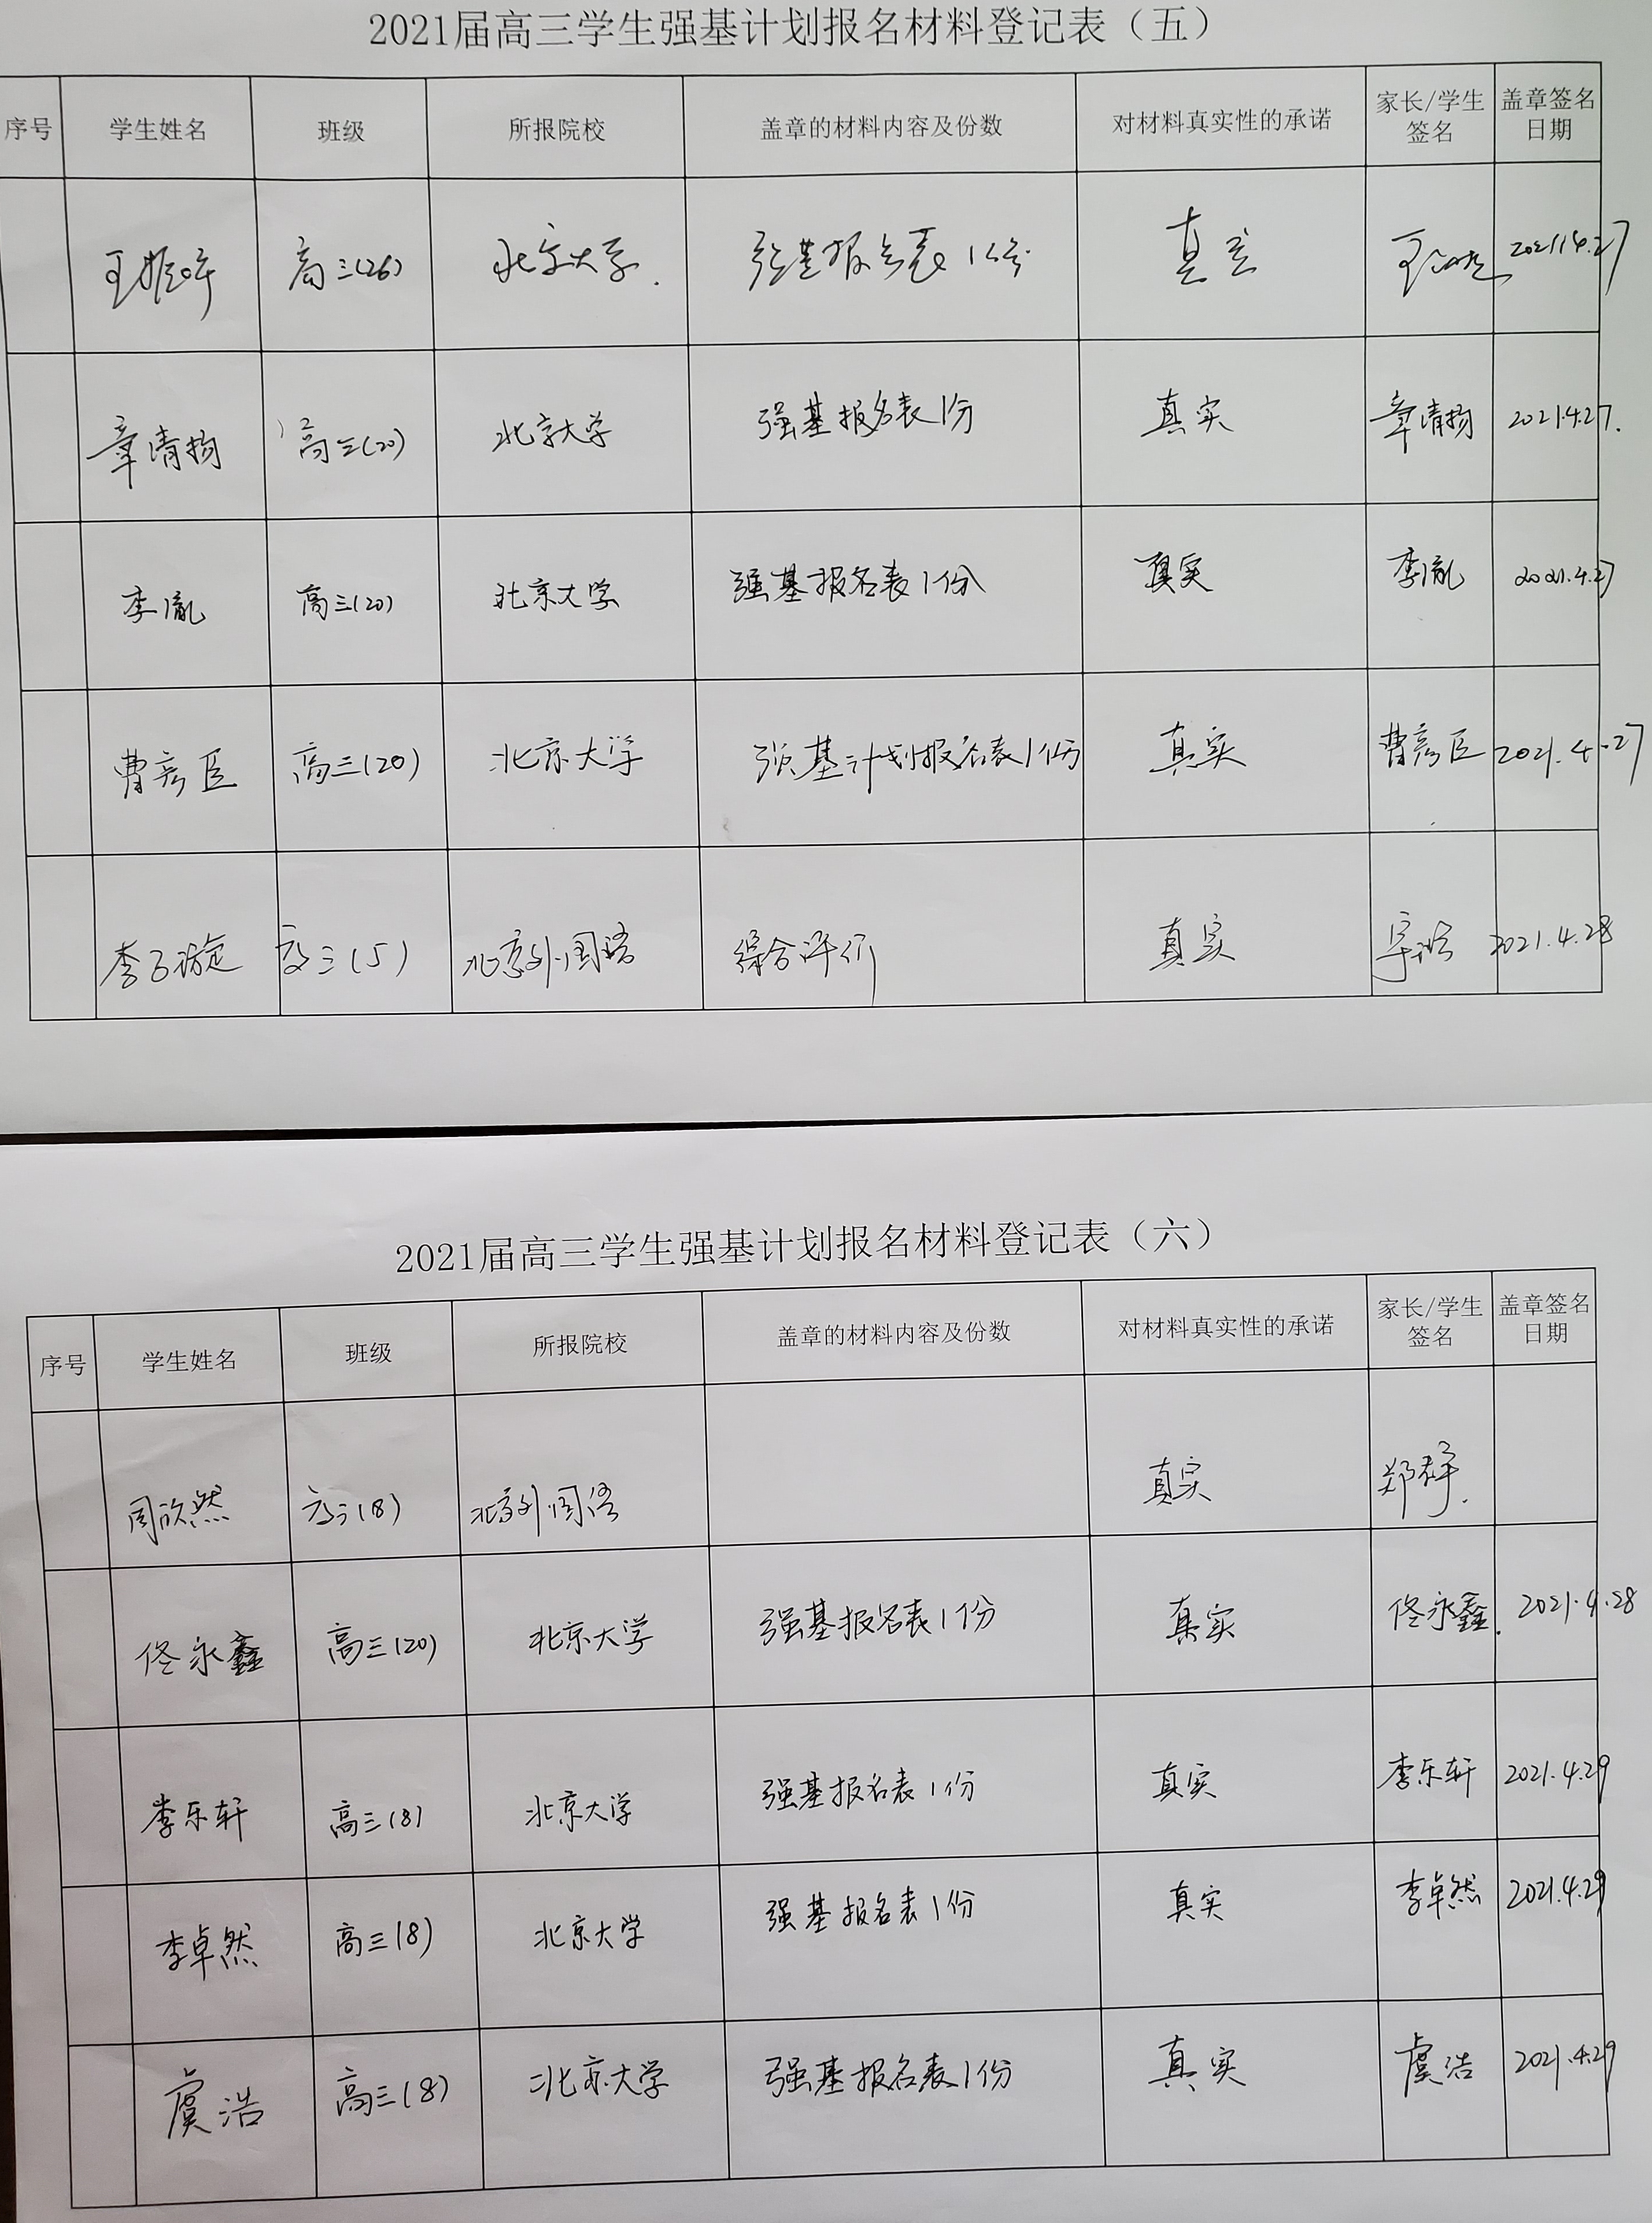 2021届高三学生强基计划报名材料登记表（五）
序号 学生姓名 班级 所报院校 盖章的材料内容及份数 对材料真实性的承诺 家长/学生签名 盖章签名日期
高三(26) 北京大学. 强基报名表1份 真实 2021.4.27
章清扬 高三(20) 北京大学 强基报名表1份 真实 章清扬 2021.4.27.
李胤 高三(20) 北京大学 强基报名表1份 真实 李胤 2021.4.27
曹彦臣 高三(20) 北京大学 强基计划报名表1份 真实 曹彦臣 2021.4.27
李子璇 高三(5) 北京外国语 综合评价 真实 2021.4.28
2021届高三学生强基计划报名材料登记表（六）
序号 学生姓名 班级 所报院校 盖章的材料内容及份数 对材料真实性的承诺 家长/学生签名 盖章签名日期
周欣然 高三(8) 北京外国语 真实 郑群.
佟永鑫 高三(20) 北京大学 强基报名表1份 真实 佟永鑫. 2021.4.28
李乐轩 高三(8) 北京大学 强基报名表1份 真实 李乐轩 2021.4.29
李卓然 高三(8) 北京大学 强基报名表1份 真实 李卓然 2021.4.29
虞浩 高三(8) 北京大学 强基报名表1份 真实 虞浩 2021.4.29